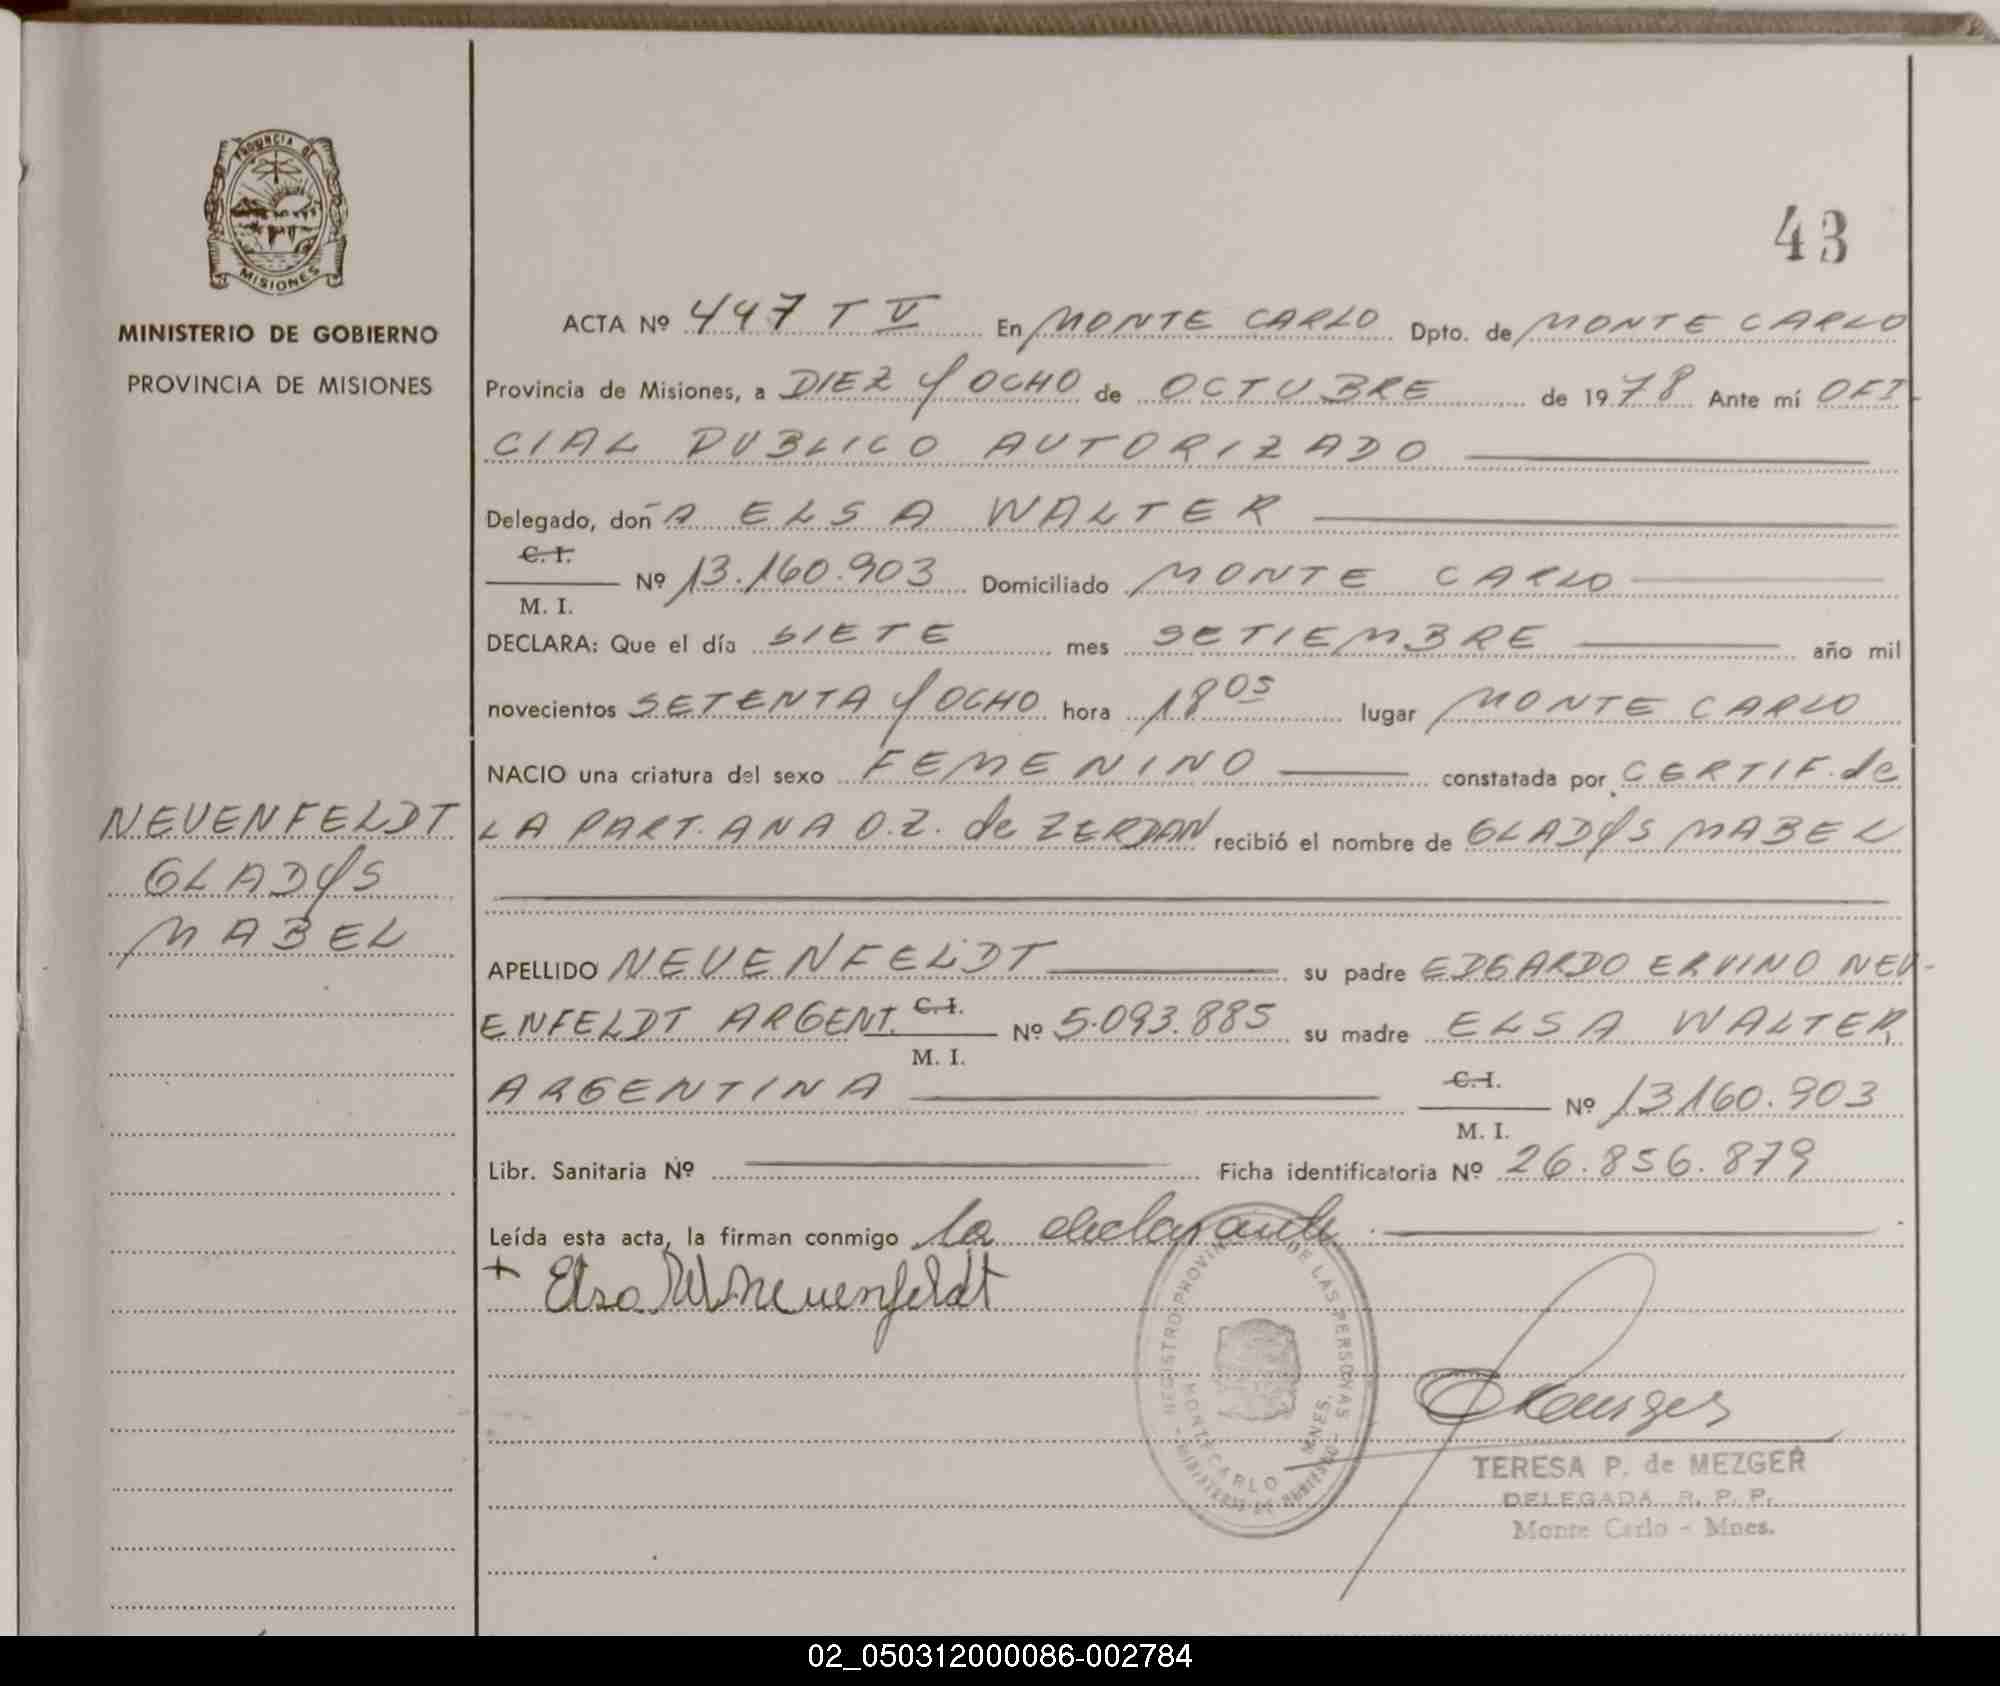 43
PROVINCIA DE
MISIONES
MINISTERIO DE GOBIERNO
PROVINCIA DE MISIONES
NEUENFELDT
GLADYS
MABEL
ACTA Nº 447 T V En MONTE CARLO Dpto. de MONTE CARLO
Provincia de Misiones, a DIEZ Y OCHO de OCTUBRE de 1978 Ante mí OFI-
CIAL PUBLICO AUTORIZADO
Delegado, doñA ELSA WALTER
C. I.
Nº 13.160.903 Domiciliado MONTE CARLO
M. I.
DECLARA: Que el día SIETE mes SETIEMBRE año mil
novecientos SETENTA Y OCHO hora 18 05 lugar MONTE CARLO
NACIO una criatura del sexo FEMENINO constatada por CERTIF. de
LA PART. ANA O.Z. de ZERDAN recibió el nombre de GLADYS MABEL
APELLIDO NEUENFELDT su padre EDGARDO ERVINO NEU-
ENFELDT ARGENT. C. I. Nº 5.093.885 su madre ELSA WALTER,
M. I.
ARGENTINA C. I. Nº 13160.903
M. I.
Libr. Sanitaria Nº Ficha identificatoria Nº 26.856.879
Leída esta acta, la firman conmigo la declarante
+ Elsa W Neuenfeldt
REGISTRO PROVINCIAL DE LAS PERSONAS
MONTECARLO MNES.
MINISTERIO DE GOBIERNO
TERESA P. de MEZGER
DELEGADA R. P. P.
Monte Carlo - Mnes.
02_050312000086-002784